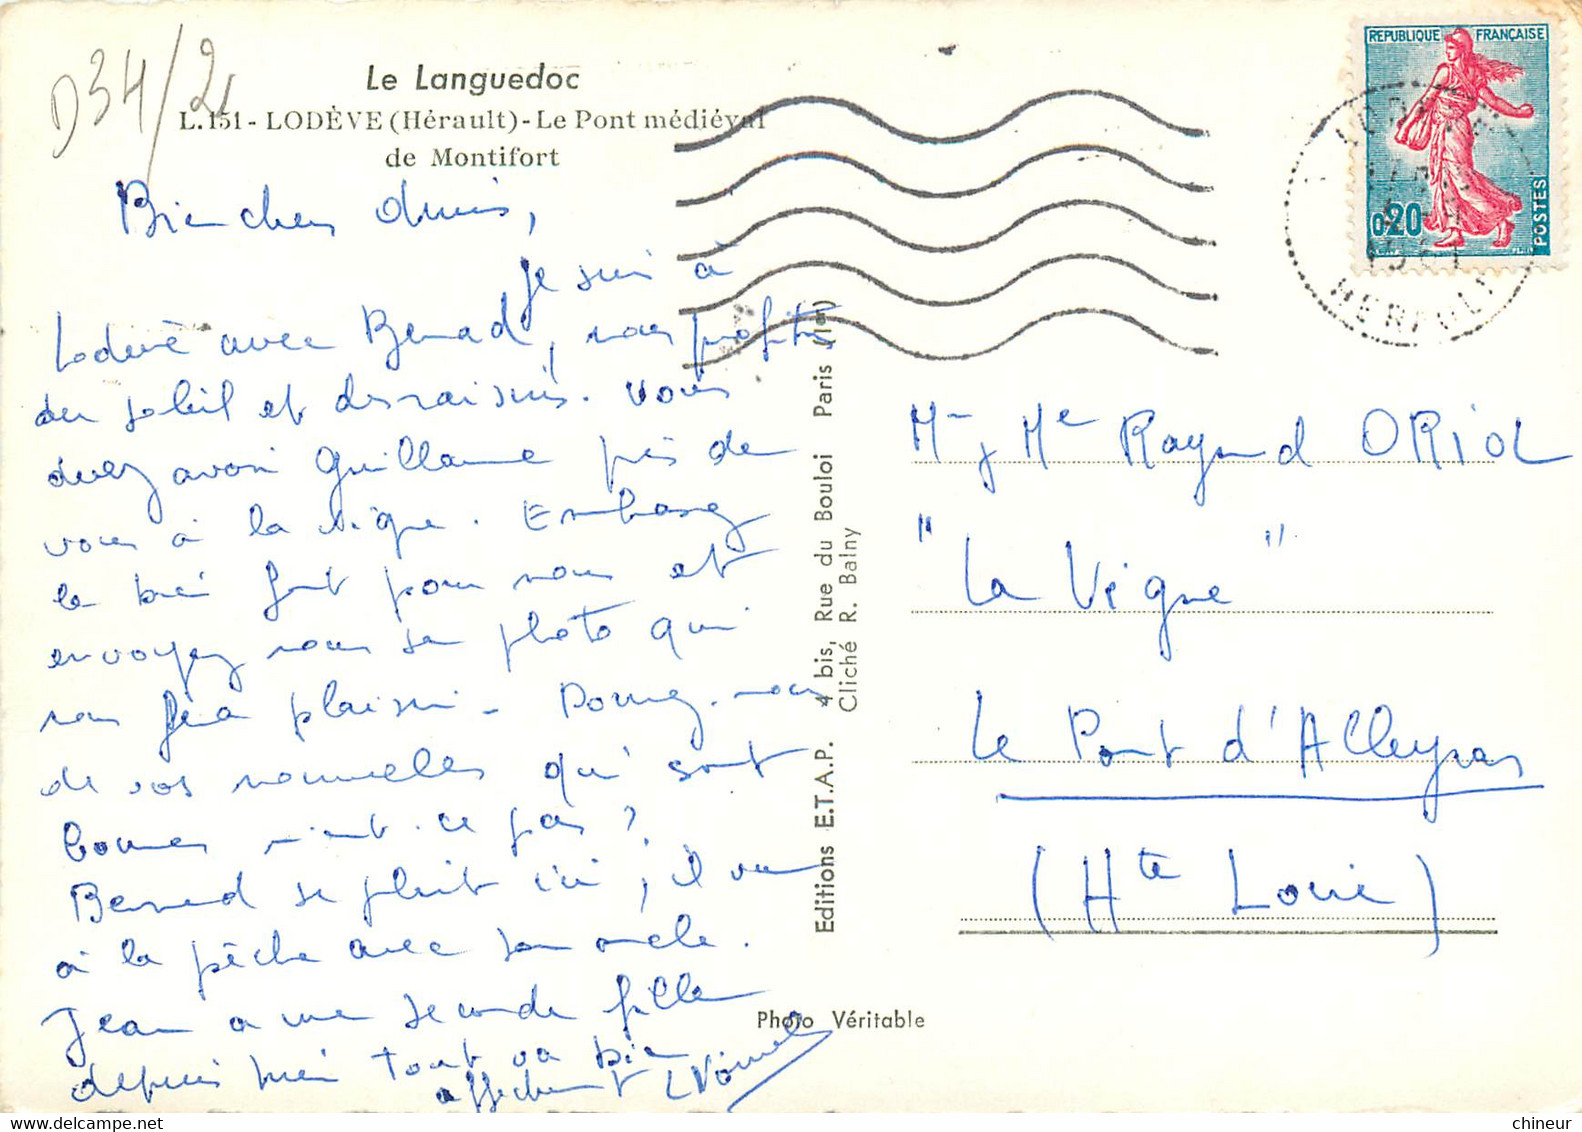 D34/2
Le Languedoc
L.151 - LODÈVE (Hérault) - Le Pont médiéval
de Montifort
Bien chers amis,
je suis à
Lodève avec Bernard, nous profitons
du soleil et des raisins. Vous
devez avoir Guillaume près de
vous à la Vigne. Embrassez
le bien fort pour nous et
envoyez nous sa photo qui
nous fera plaisir - Donnez-nous
de vos nouvelles qui sont
bonnes n'est-ce pas ?
Bernard se plait ici, il va
à la pêche avec son oncle.
Jean a une seconde fille
depuis hier tout va bien
affectueusement
REPUBLIQUE FRANÇAISE
0,20
POSTES
HERAULT
Editions E.T.A.P. 4 bis, Rue du Bouloi Paris (1er)
Cliché R. Balny
Mr y Me Raymond ORIOL
"La Vigne"
Le Pont d'Alleyras
(Hte Loire)
Photo Véritable
chineur